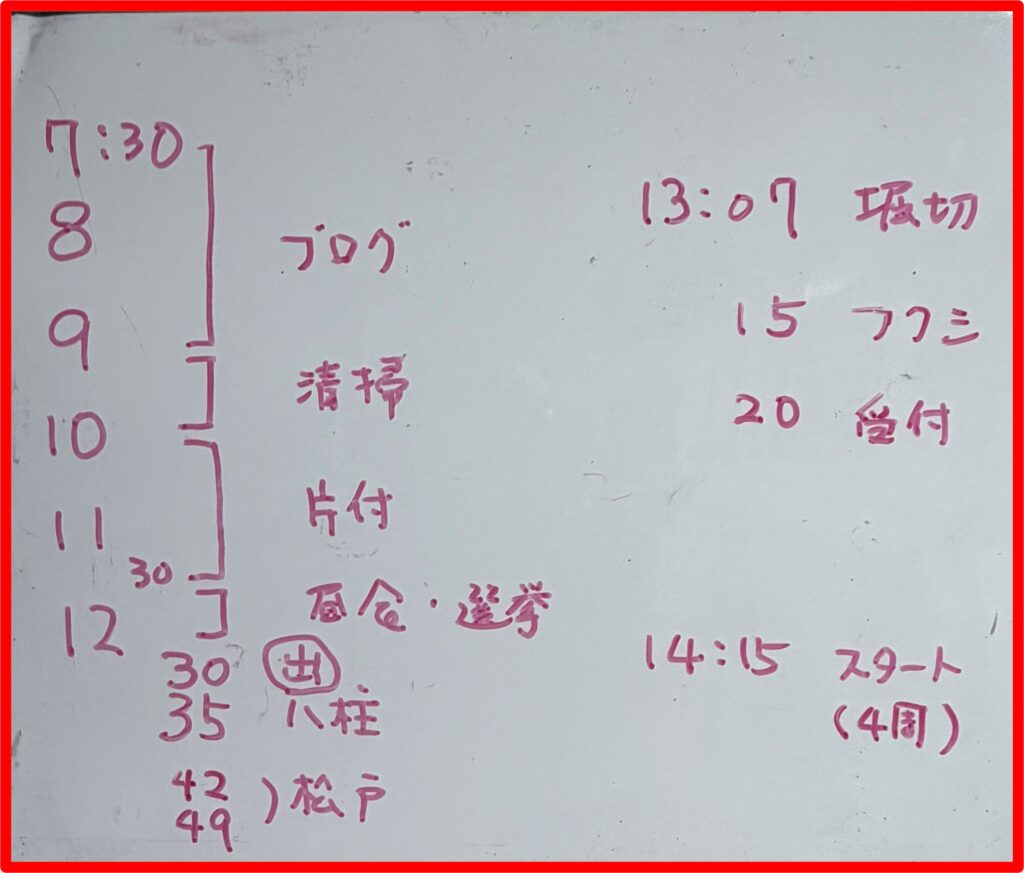 7:30
8
ブログ
9
清掃
10
片付
11
30
昼食・選挙
12
30 出
35 八柱
42
49
)松戸
13:07 堀切
15 フクシ
20 受付
14:15 スタート
(4周)